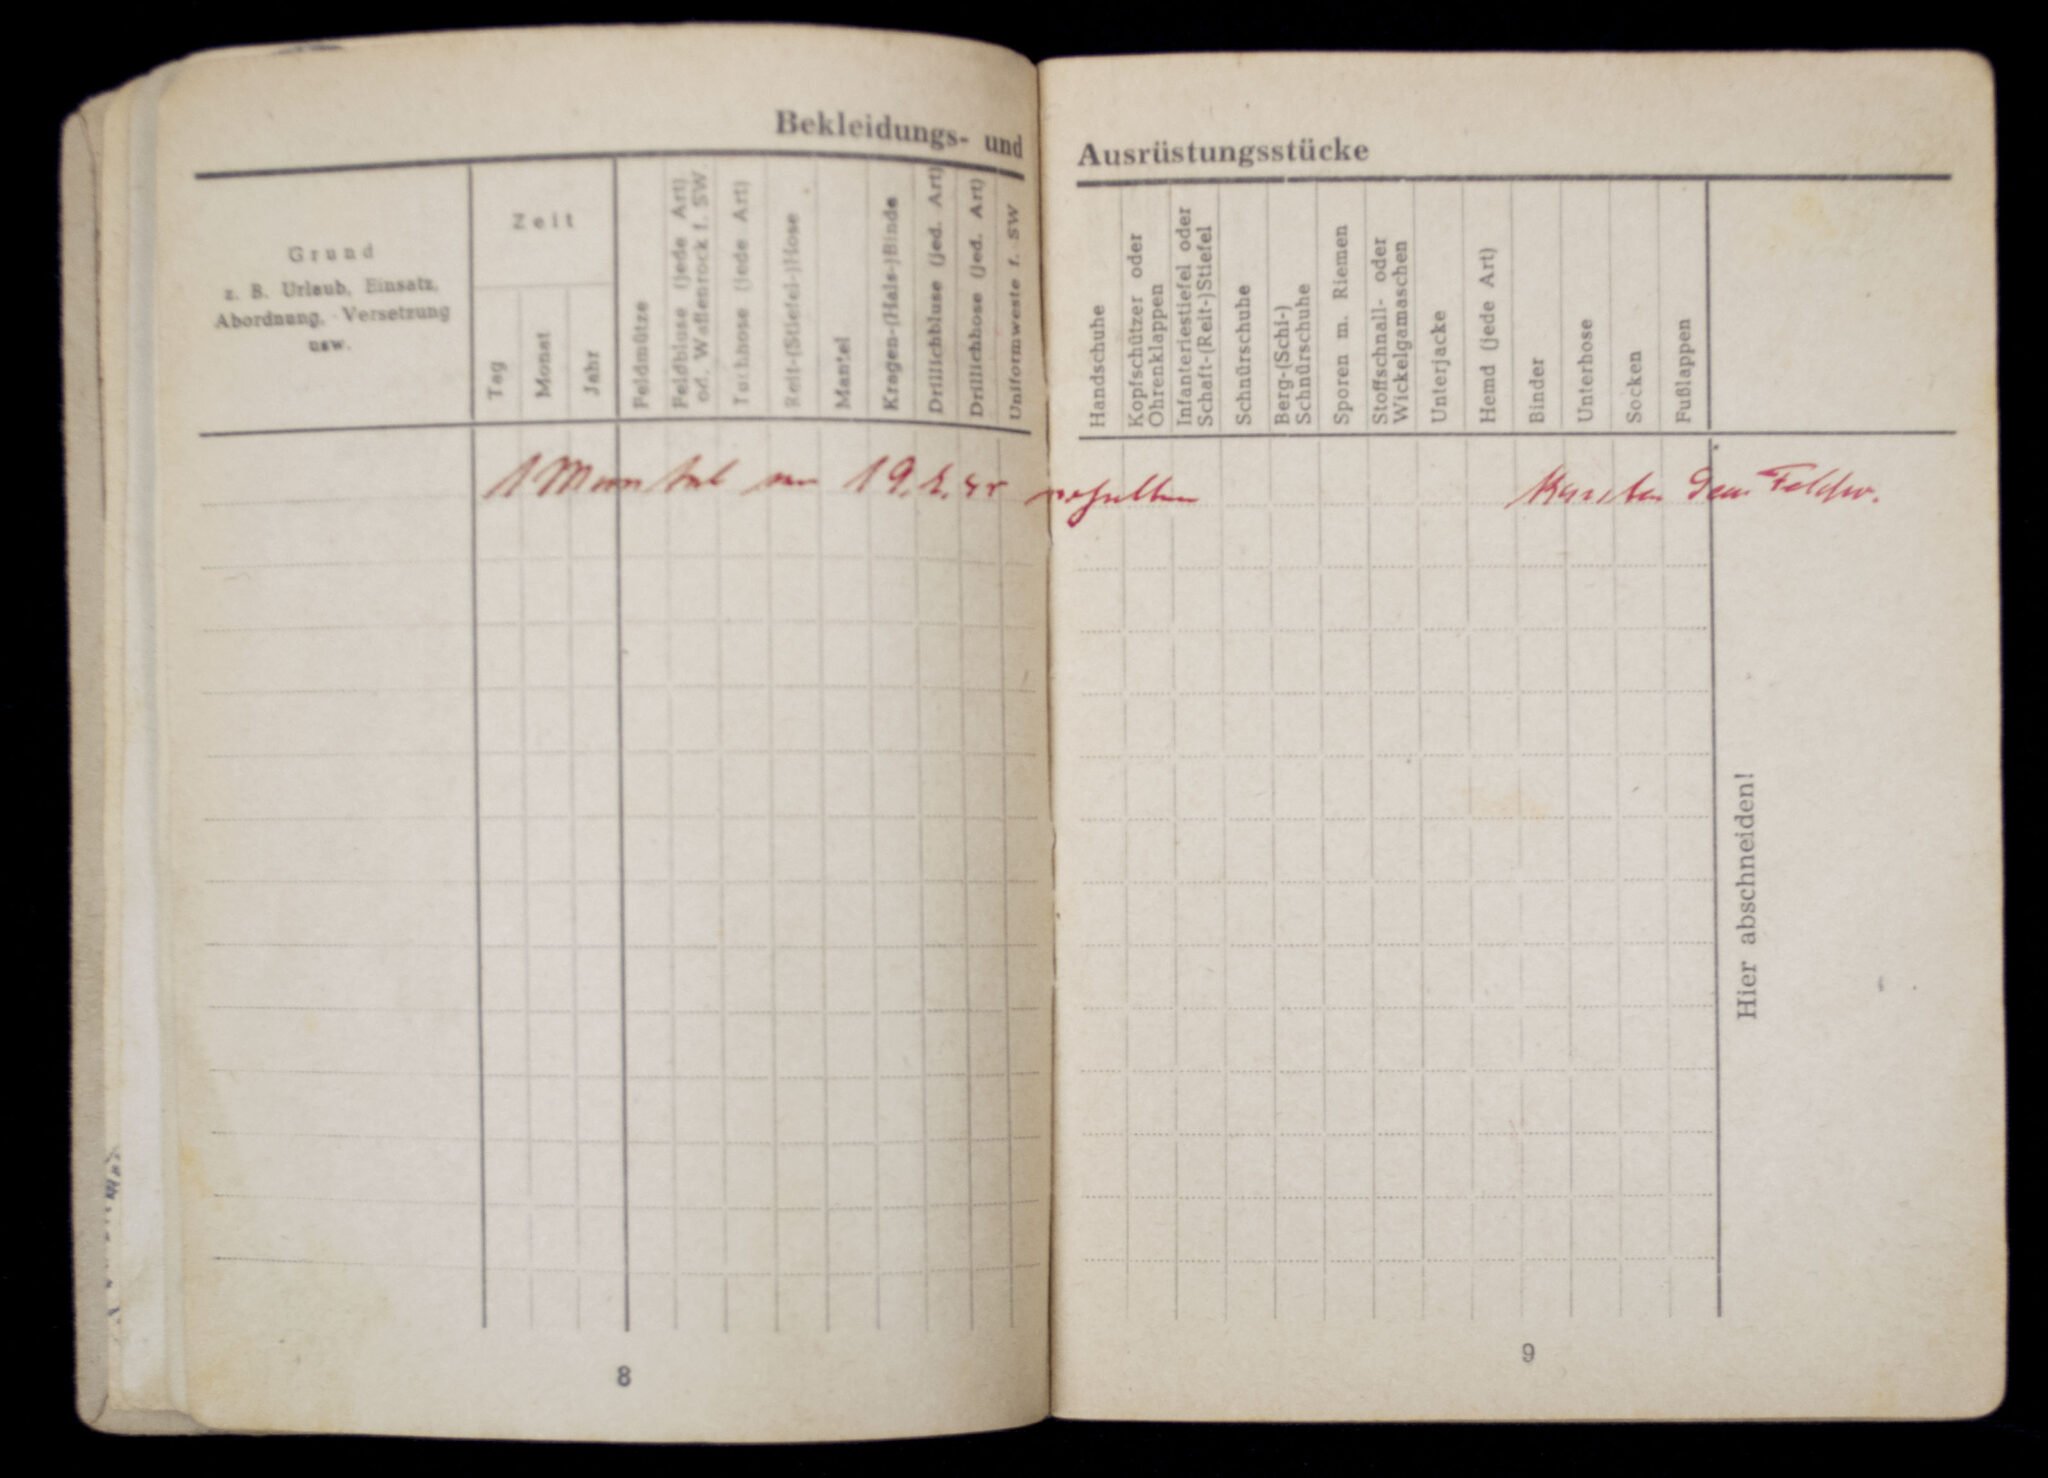 Bekleidungs- und
Grund
z. B. Urlaub, Einsatz,
Abordnung, Versetzung
usw.
Zeit
Tag
Monat
Jahr
Feldmütze
Feldbluse (jede Art)
od. Waffenrock f. SW.
Tuchhose (jede Art)
Reit-(Stiefel-)Hose
Mantel
Kragen-(Hals-)Binde
Drillichbluse (jed. Art)
Drillichhose (jed. Art)
Uniformweste f. SW
1 Mantel am 19.
8
Ausrüstungsstücke
Handschuhe
Kopfschützer oder
Ohrenklappen
Infanteriestiefel oder
Schaft-(Reit-)Stiefel
Schnürschuhe
Berg-(Schi-)
Schnürschuhe
Sporen m. Riemen
Stoffschnall- oder
Wickelgamaschen
Unterjacke
Hemd (jede Art)
Binder
Unterhose
Socken
Fußlappen
Hier abschneiden!
9